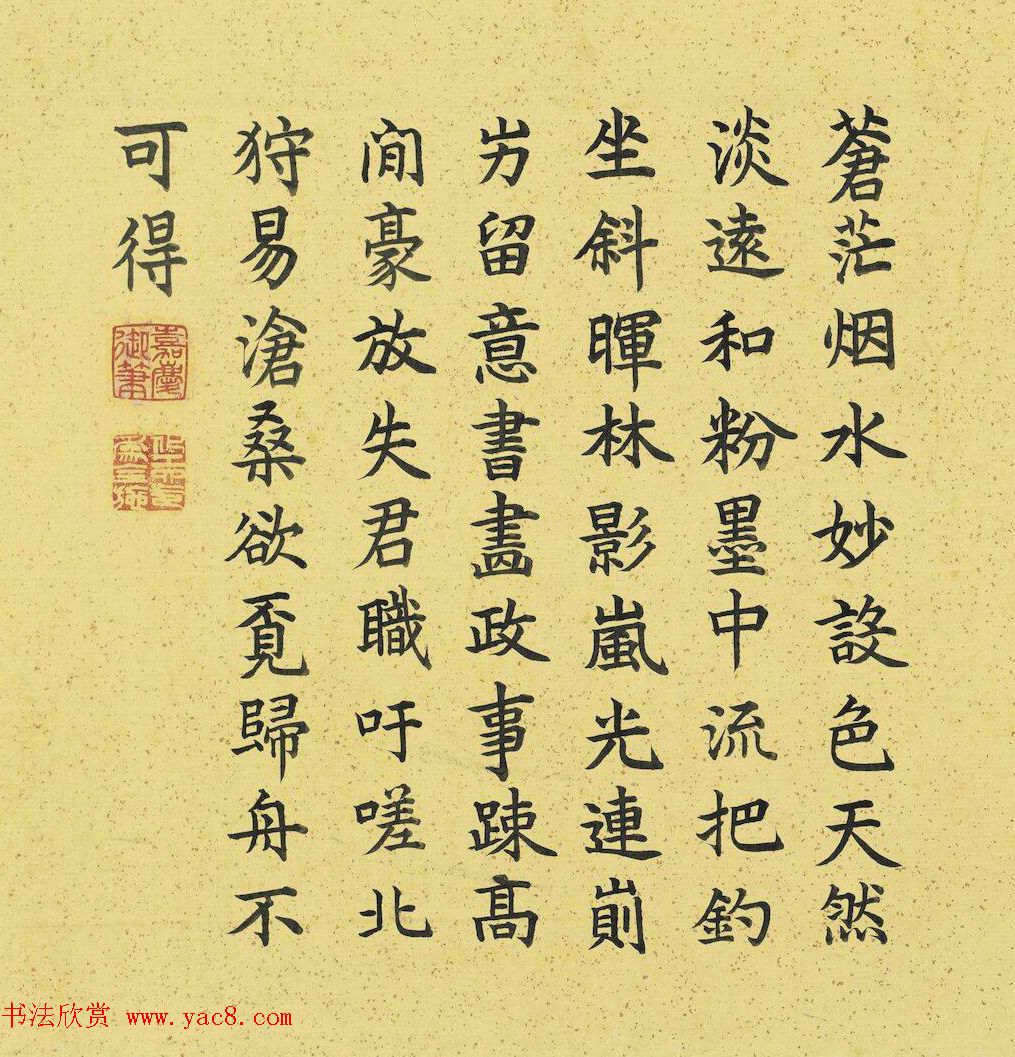 蒼茫烟水妙設色天然
淡遠和粉墨中流把釣
坐斜暉林影嵐光連崱
屴留意書畫政事疎髙
閒豪放失君職吁嗟北
狩易滄桑欲覔歸舟不
可得
嘉慶御筆
书法欣赏 www.yac8.com